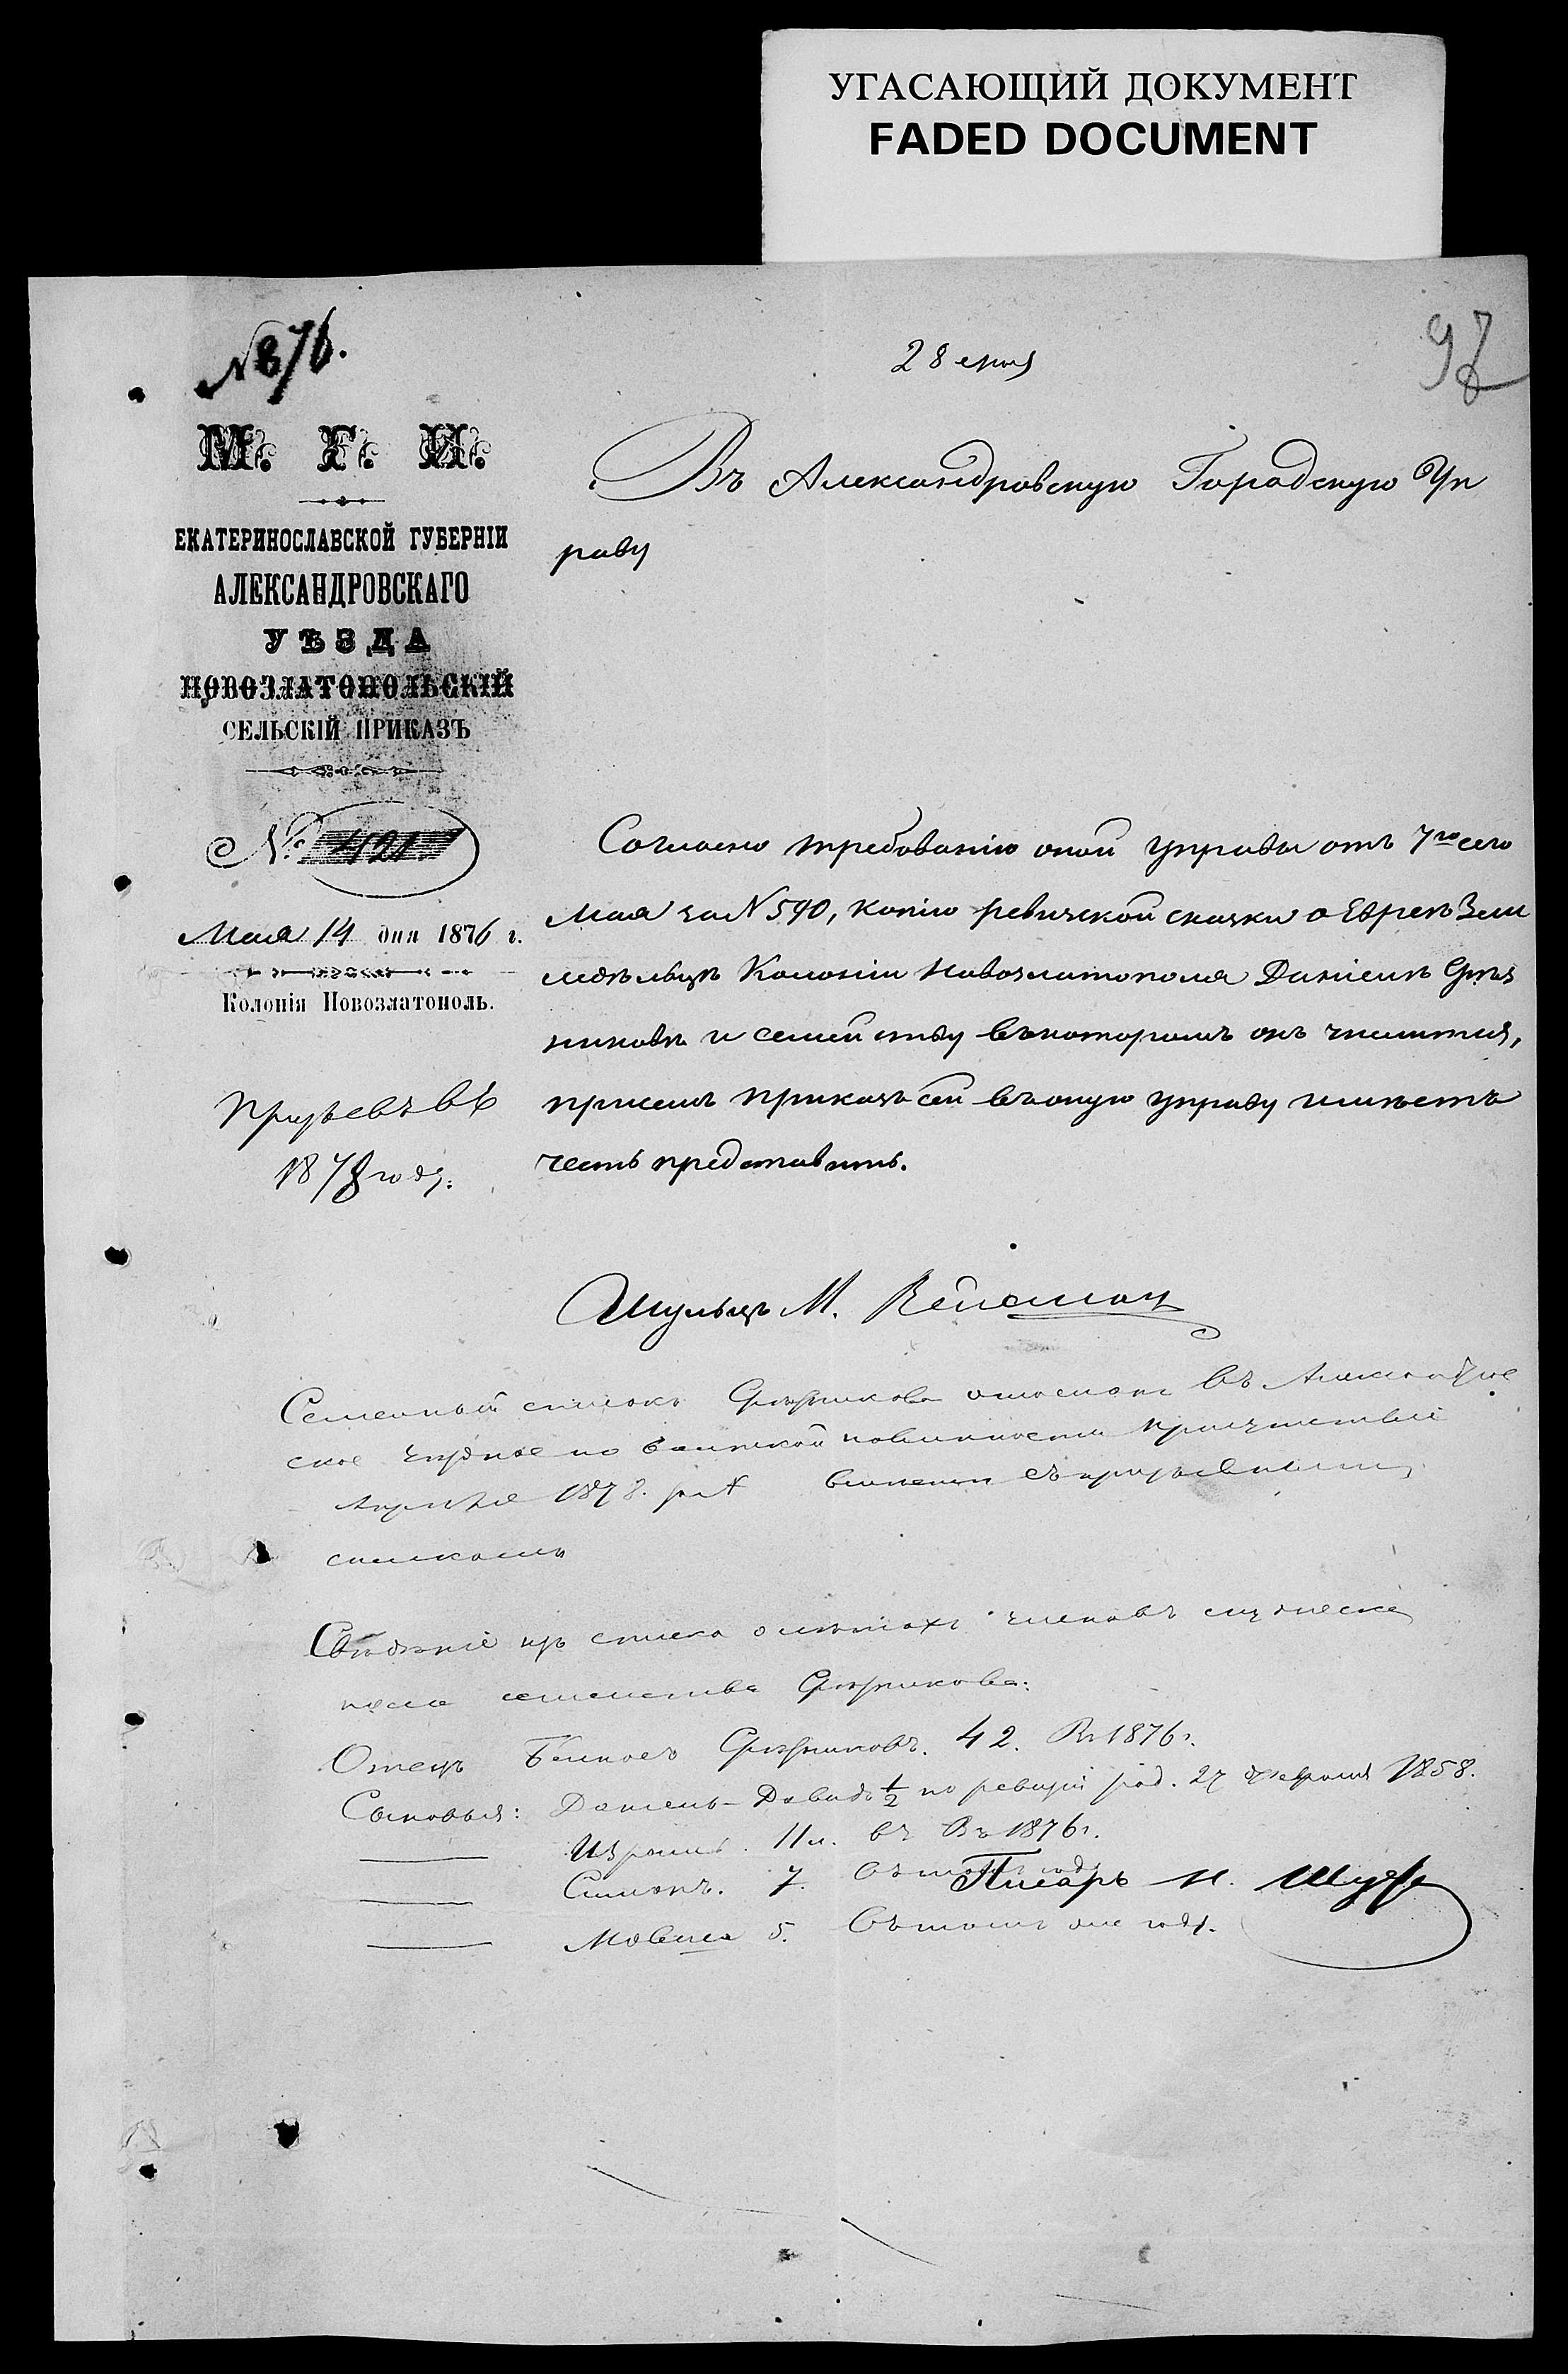 УГАСАЮЩИЙ ДОКУМЕНТ
FADED DOCUMENT
№ 876.
28
97
М. Г. И.
ЕКАТЕРИНОСЛАВСКОЙ ГУБЕРНІИ
АЛЕКСАНДРОВСКАГО
УѢЗДА
НОВОЗЛАТОПОЛЬСКІЙ
СЕЛЬСКІЙ ПРИКАЗЪ
№ 421.
Мая 14 дня 1876 г.
Колонія Новозлатополь.
Призывъ въ
1878 году.
Въ Александровскую Городскую Уп
раву
Согласно требованію оной управы отъ 7го сего
Мая за № 590, копію ревизской сказки о Евреѣ Зем
ледѣльцѣ Колоніи Новозлатополя Даніелѣ
и семейству въ которомъ онъ числится,
при семъ приказъ сей въ оную управу имѣетъ
честь представить.
Шульцъ М.
Семейный списокъ отосланъ въ
ское по воинской повинности Присутствіе
Апрѣля 1878. съ призывными
спискомъ
Свѣденіе изъ списка о лѣтахъ членовъ
семейства
Отецъ 42. Въ 1876 г.
Сыновья: Даніель-Давидъ ½ по ревизіи род. 27 февраля 1858.
Израиль. 11 л. Въ 1876 г.
Симонъ. 7. Въ томъ году
Писарь И.
Мовша 5. Въ томъ же году.